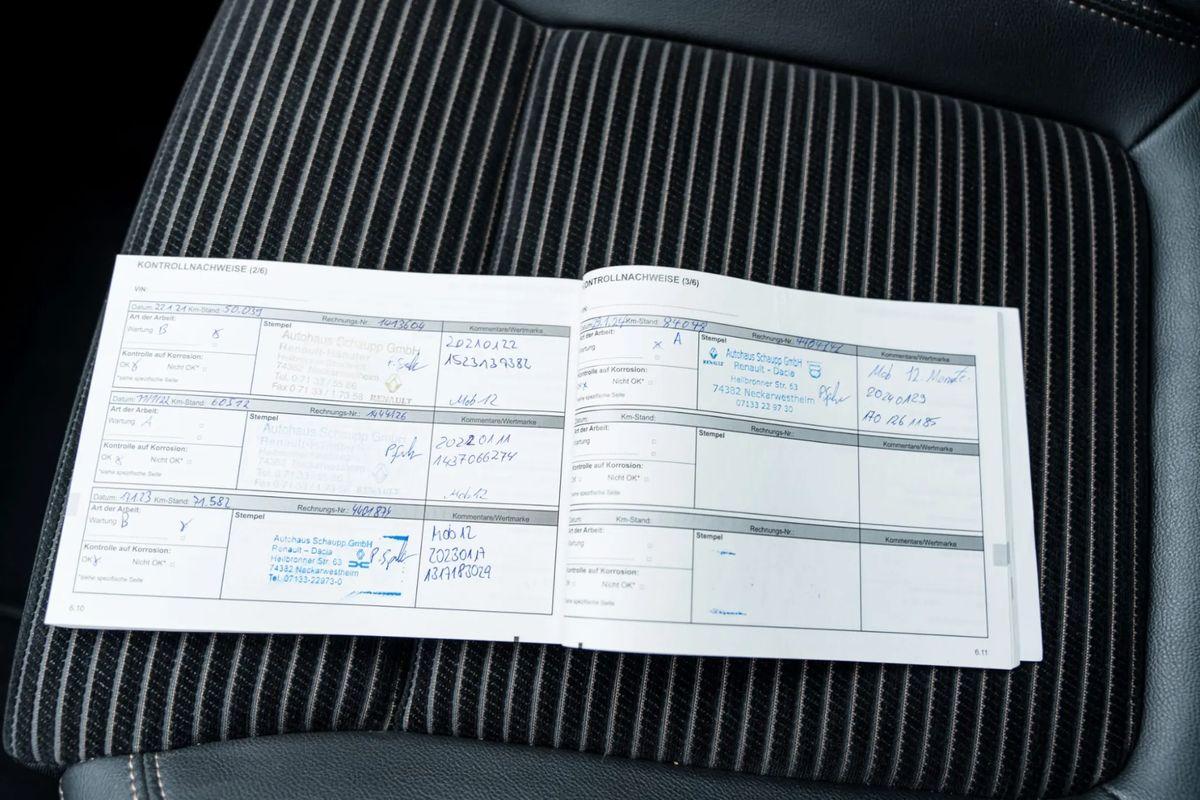 KONTROLLNACHWEISE (2/6)
VIN:
Datum: 22.1.21 Km-Stand: 50.039
Rechnungs-Nr.: 1413604
Kommentare/Wertmarke
Art der Arbeit:
Wartung B
Kontrolle auf Korrosion:
OK Nicht OK*
*siehe spezifische Seite
Stempel
Autohaus Schaupp GmbH
Renault-Händler
20210122
1523139382
Mob 12
Datum: 11/1/22 Km-Stand: 60512
Rechnungs-Nr.: 1444126
Kommentare/Wertmarke
Art der Arbeit:
Wartung A
Kontrolle auf Korrosion:
OK Nicht OK*
*siehe spezifische Seite
Stempel
Autohaus Schaupp GmbH
74382 Neckarwestheim
20220111
1437066274
Mob 12
Datum: 17.1.23 Km-Stand: 71.582
Rechnungs-Nr.: 4401874
Kommentare/Wertmarke
Art der Arbeit:
Wartung B
Kontrolle auf Korrosion:
OK Nicht OK*
*siehe spezifische Seite
Stempel
Autohaus Schaupp GmbH
Renault - Dacia
Heilbronner Str. 63
74382 Neckarwestheim
Tel. 07133-22973-0
Mob 12
20230117
1317183029
6.10
KONTROLLNACHWEISE (3/6)
Km-Stand: 84048
Rechnungs-Nr.:
Kommentare/Wertmarke
Art der Arbeit:
Wartung A
Kontrolle auf Korrosion:
Nicht OK*
*siehe spezifische Seite
Stempel
RENAULT
Autohaus Schaupp GmbH
Renault - Dacia
Heilbronner Str. 63
74382 Neckarwestheim
07133 22 97 30
Mob 12 Monate
20240129
A0 1261185
Datum: Km-Stand:
Rechnungs-Nr.:
Kommentare/Wertmarke
Art der Arbeit:
Wartung
Kontrolle auf Korrosion:
Nicht OK*
*siehe spezifische Seite
Stempel
Datum: Km-Stand:
Rechnungs-Nr.:
Kommentare/Wertmarke
Art der Arbeit:
Wartung
Kontrolle auf Korrosion:
Nicht OK*
*siehe spezifische Seite
Stempel
6.11